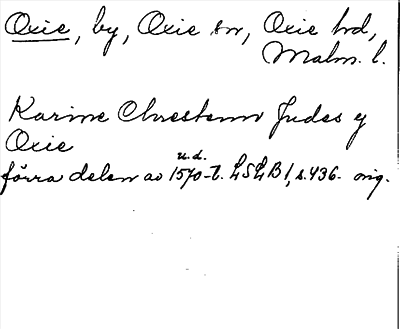 Oxie, by, Oxie sn, Oxie hd,
Malm. l.
Karine Chrestenn Judes y
Oxie
u.d.
förra delen av 1570-t. LSLB 1, s. 436. orig.